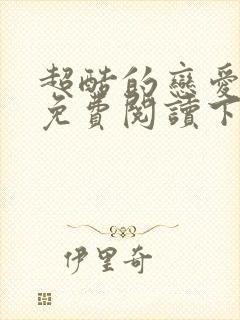 超酷的戀愛
免費閱讀下
伊里奇